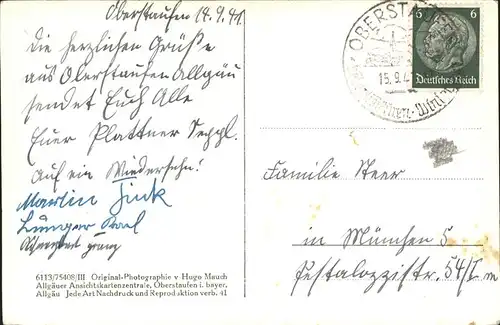 Oberstaufen 14.9.41.
Die herzlichen Grüße
aus Oberstaufen Allgäu
sendet Euch Alle
Euer Plattner Seppl.
Auf ein Wiedersehn!
Martin Fink
Lunger Karl
Franz
6113/75408/III Original-Photographie v Hugo Mauch
Allgäuer Ansichtskartenzentrale, Oberstaufen i. bayer.
Allgäu Jede Art Nachdruck und Reproduktion verb. 41
OBERSTAUFEN
15.9.4
6 6
Deutsches Reich
Familie Steer
in München 5
Pestalozzistr. 54/I